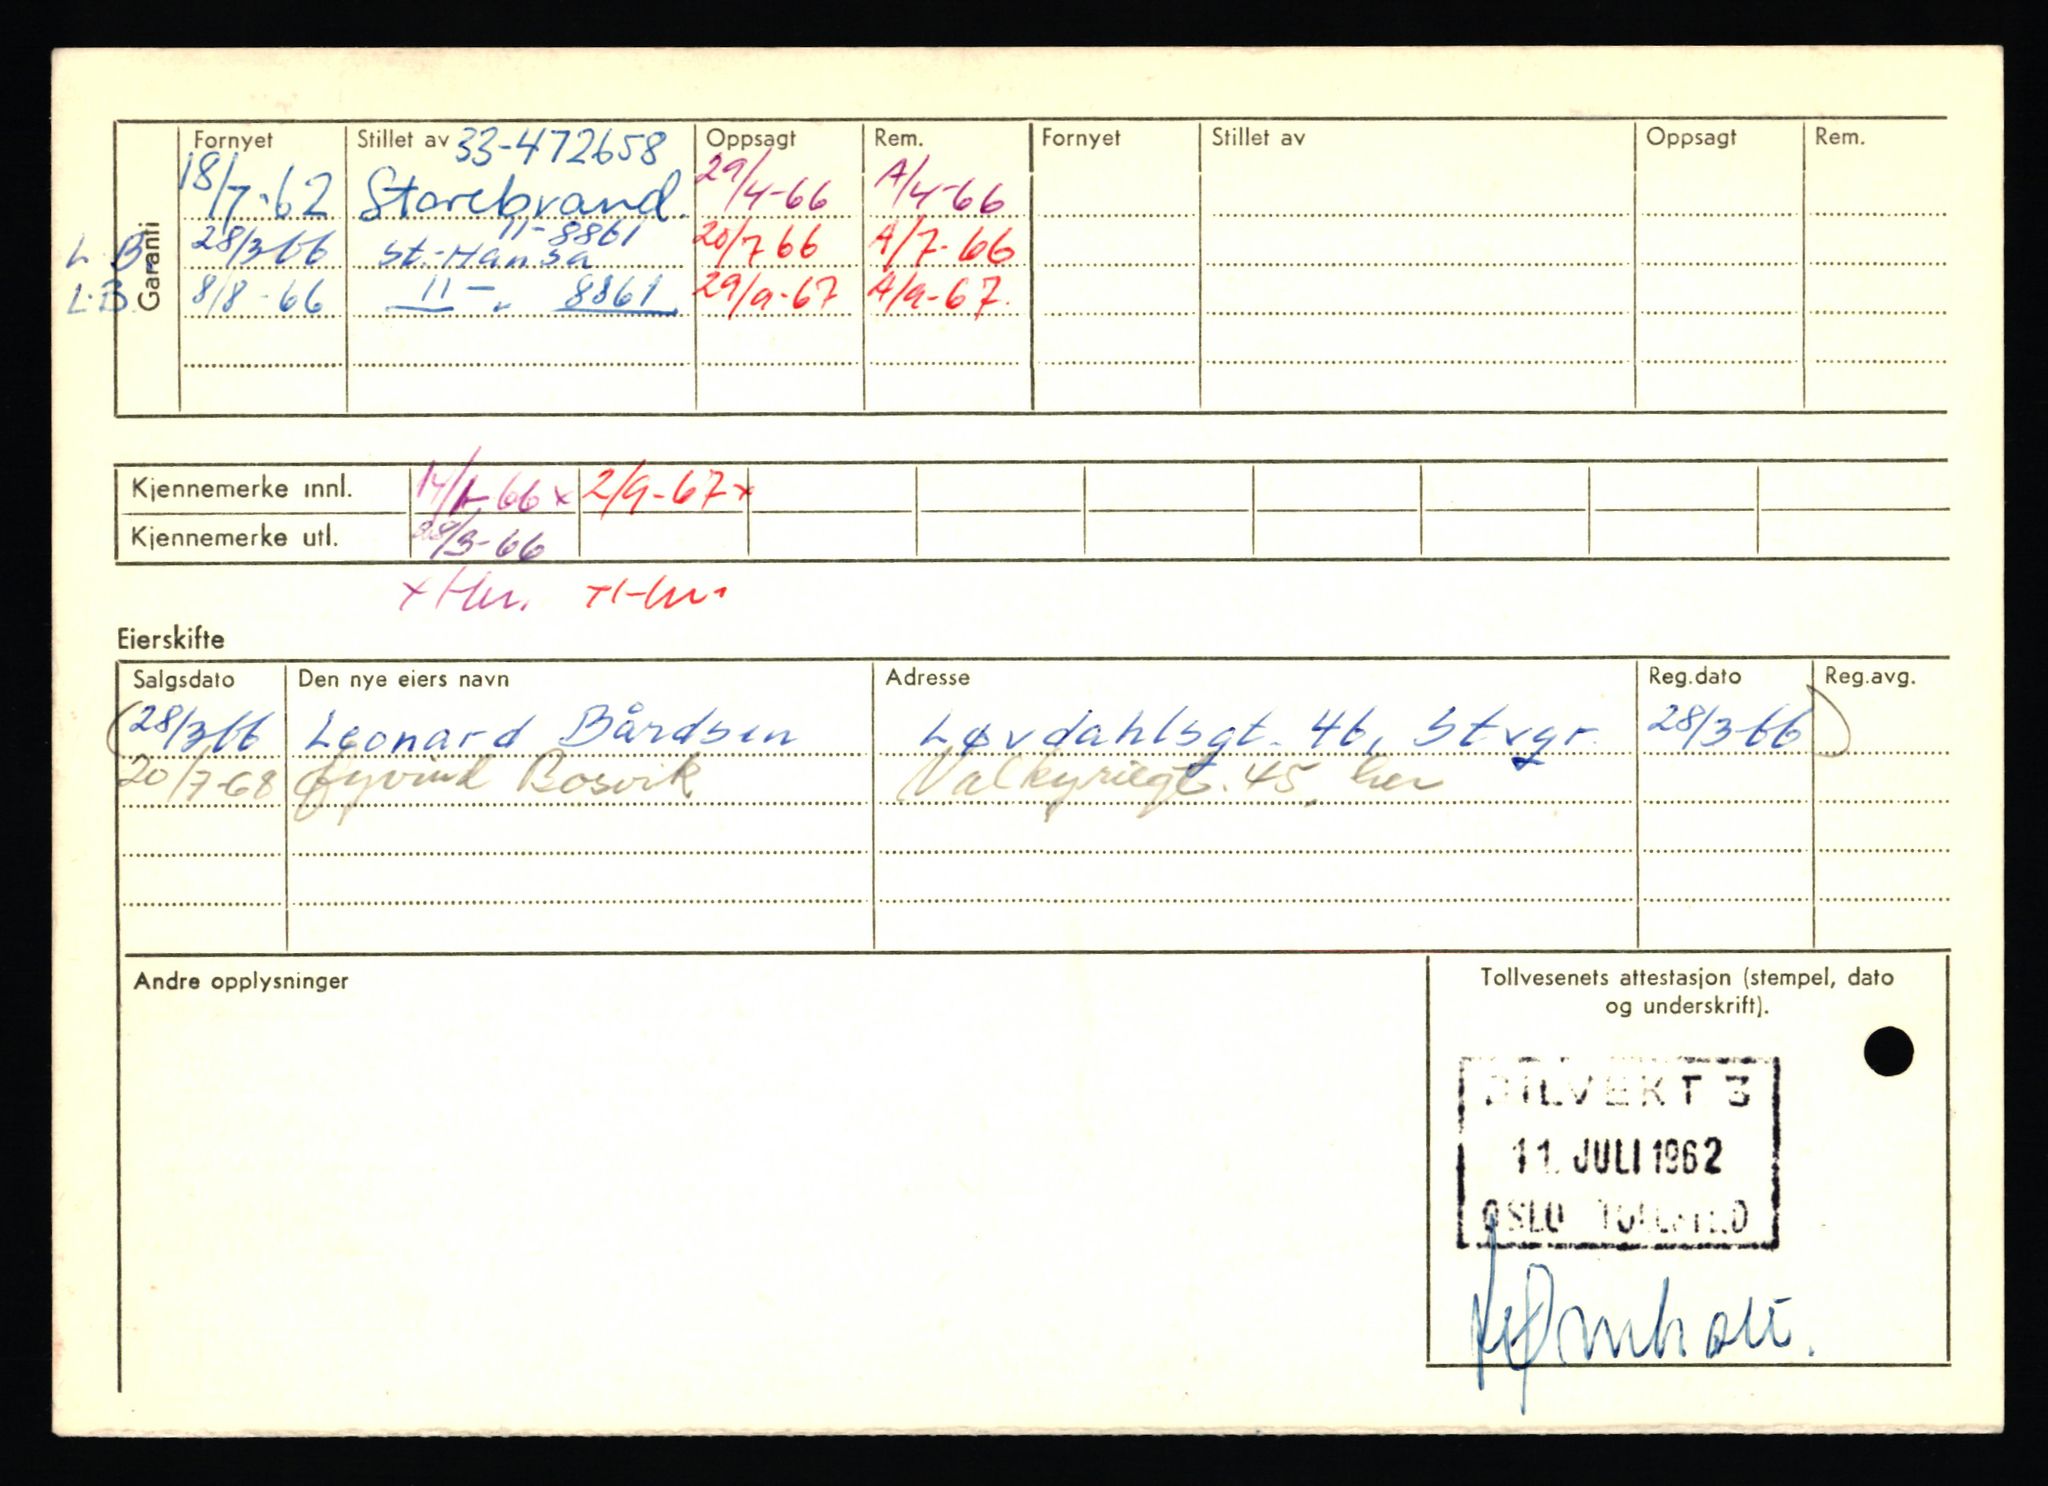 Garanti
Fornyet Stillet av 33-472658 Oppsagt Rem. Fornyet Stillet av Oppsagt Rem.
18/7-62 Storebrand. 29/4-66 A/4-66
L.B. 28/3 66 St.-Hansa 11-8861 20/7 66 A/7-66
L.B. 8/8-66 — 11 — „ 8861 29/9-67 A/9-67.
Kjennemerke innl. 14/1-66 x 2/9-67 x
Kjennemerke utl. 28/3-66
Eierskifte
Salgsdato Den nye eiers navn Adresse Reg.dato Reg.avg.
(28/3 66 Leonard Bårdsen Løvdahlsgt. 46, Stvgr. 28/3-66)
20/7-68 Øyvind Bosvik Valkyriegt. 45, her
Andre opplysninger
Tollvesenets attestasjon (stempel, dato
og underskrift).
BILVEKT 3
11. JULI 1962
OSLO TOLLSTED